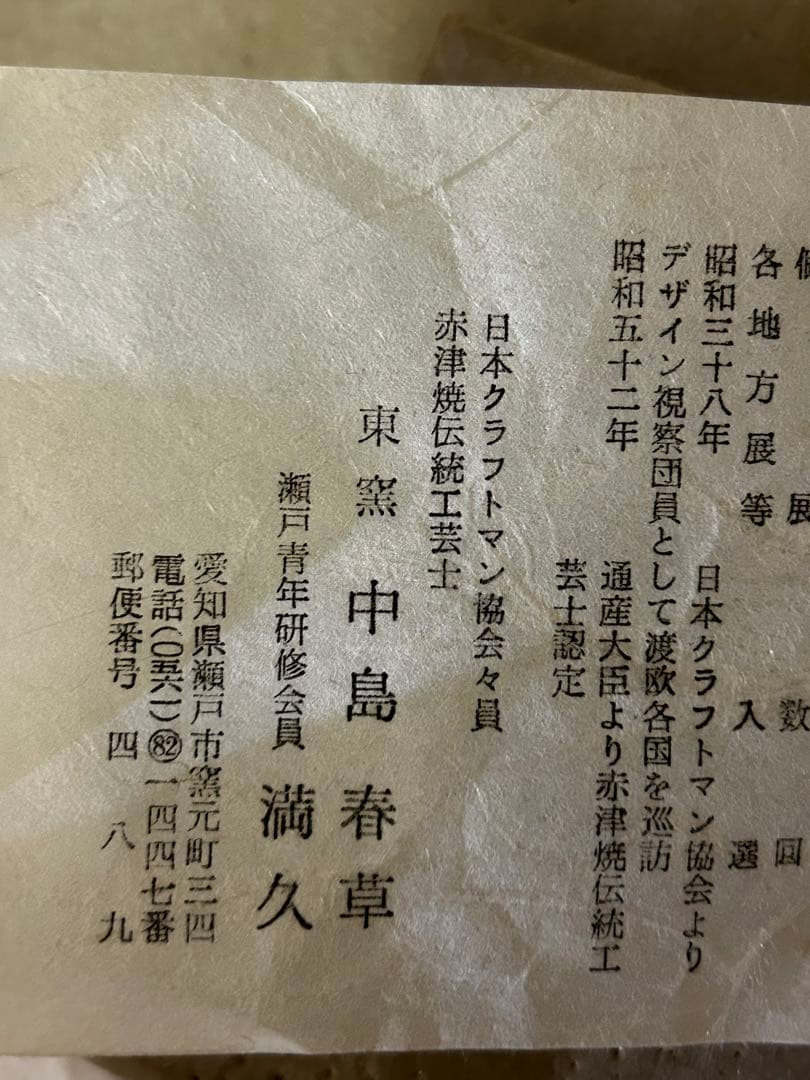 個展 数回
各地方展等 入選
昭和三十八年 日本クラフトマン協会より
デザイン視察団員として渡欧各国を巡訪
昭和五十二年 通産大臣より赤津焼伝統工
芸士認定
日本クラフトマン協会々員
赤津焼伝統工芸士
東窯 中島春草
瀬戸青年研修会員 満久
愛知県瀬戸市窯元町三四
電話(〇五六一)㉘一四四七番
郵便番号 四八九